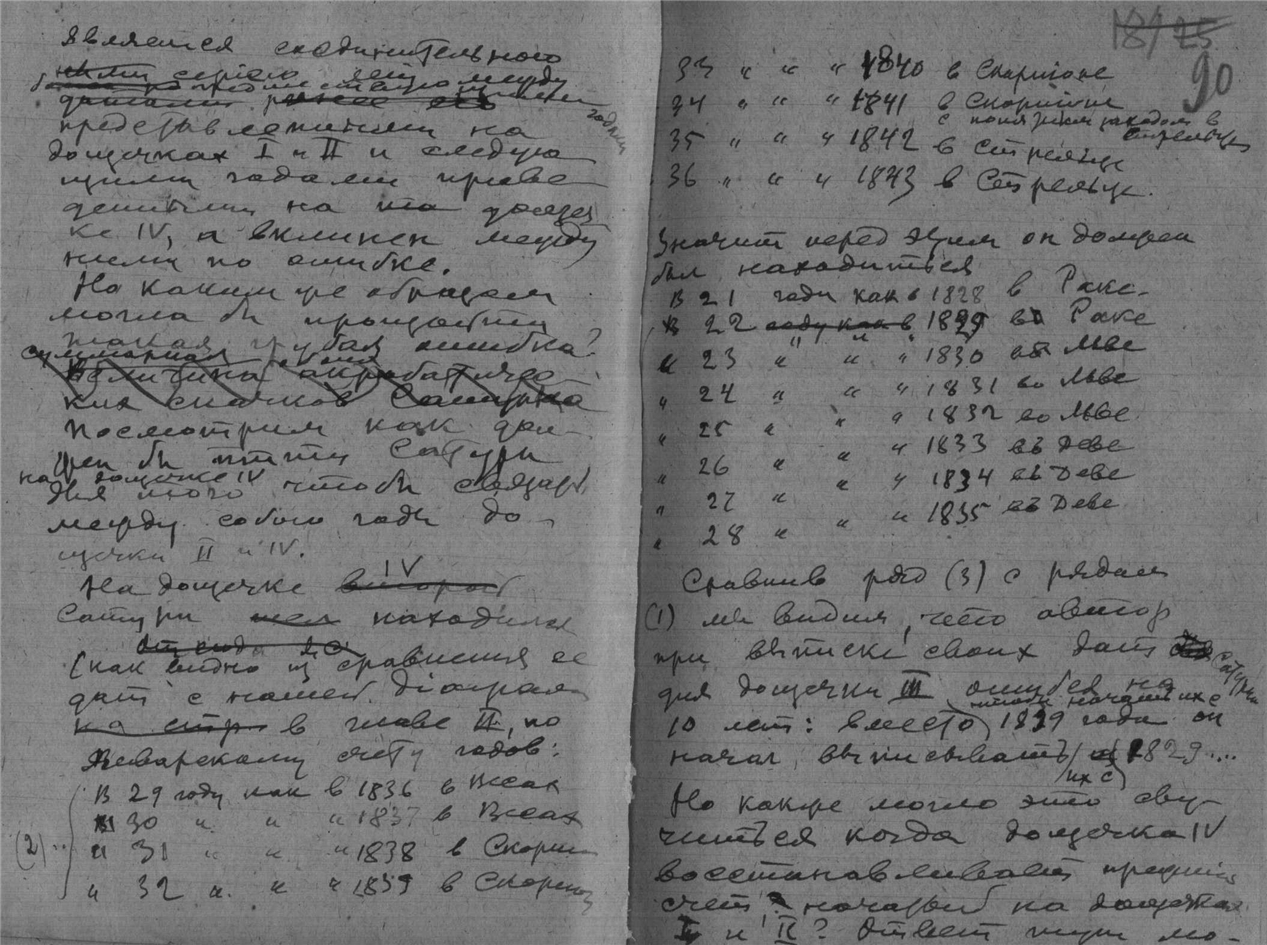 является соединительного
между
представленными на
дощечках I и II и следую
щими годами приве
денными на дощеч
ке IV, а вклинен между
ними по ошибке.
Но каким же образом
могла бы произойти
такая грубая ошибка?
суммарная
Величина
ких скачков Сатурна
Посмотрим как дол-
жен бы идти Сатурн
на дощечке IV
для того чтобы связать
между собою годы до
щечки II и IV.
IV
На дощечке второй
Сатурн шел находился
(как видно из сравнения ее
дат с нашей диаграм
на стр в главе II, по
Январскому счету годов:
В 29 году как в 1836 в Весах
30 " " " 1837 в Весах
(2) " 31 " " " 1838 в Скорпи
" 32 " " " 1839 в Скорпи
18/25
90
33 " " " 1840 в Скорпионе
34 " " " 1841 в Скорпионе
с попятным заходом в
Стрельца
35 " " " 1842 в Стрельце
36 " " " 1843 в Стрельце.
Значит перед этим он должен
был находиться
В 21 году как в 1828 в Раке.
В 22 году как в 1829 в Раке
" 23 " " " 1830 во Льве
" 24 " " " 1831 во Льве
" 25 " " " 1832 во Льве
" 26 " " " 1833 въ Деве
" 27 " " " 1834 въ Деве
" 28 " " " 1835 въ Деве
Сравнив ряд (3) с рядом
(1) мы видим, что автор
при выписке своих дат Сатурна
для дощечки III ошибся на
чтобы начать их с
10 лет: вместо 1839 года он
начал выписывать 1829....
их с
Но как же могло это слу-
читься когда дощечка IV
восстанавливает прежний
счет начатый на дощечках
I и II? Ответ тут мо-